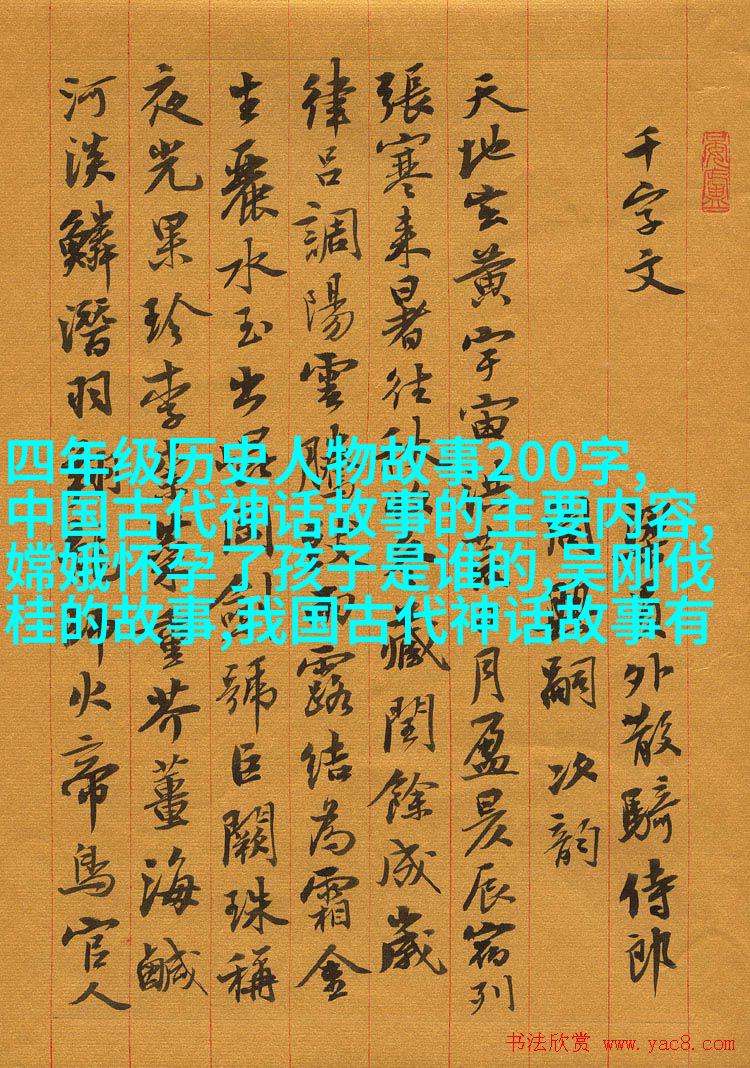 千字文
員外散騎侍郎
周興嗣次韻
天地玄黃宇宙洪荒日月盈昃辰宿列
張寒來暑往秋收冬藏閏餘成歲
律呂調陽雲騰致雨露結為霜金
生麗水玉出崑岡劍號巨闕珠稱
夜光果珍李柰菜重芥薑海鹹
河淡鱗潛羽翔龍師火帝鳥官人
四年级历史人物故事200字,
中国古代神话故事的主要内容,
嫦娥怀孕了孩子是谁的,吴刚伐
桂的故事,我国古代神话故事有
书法欣赏 www.yac8.com